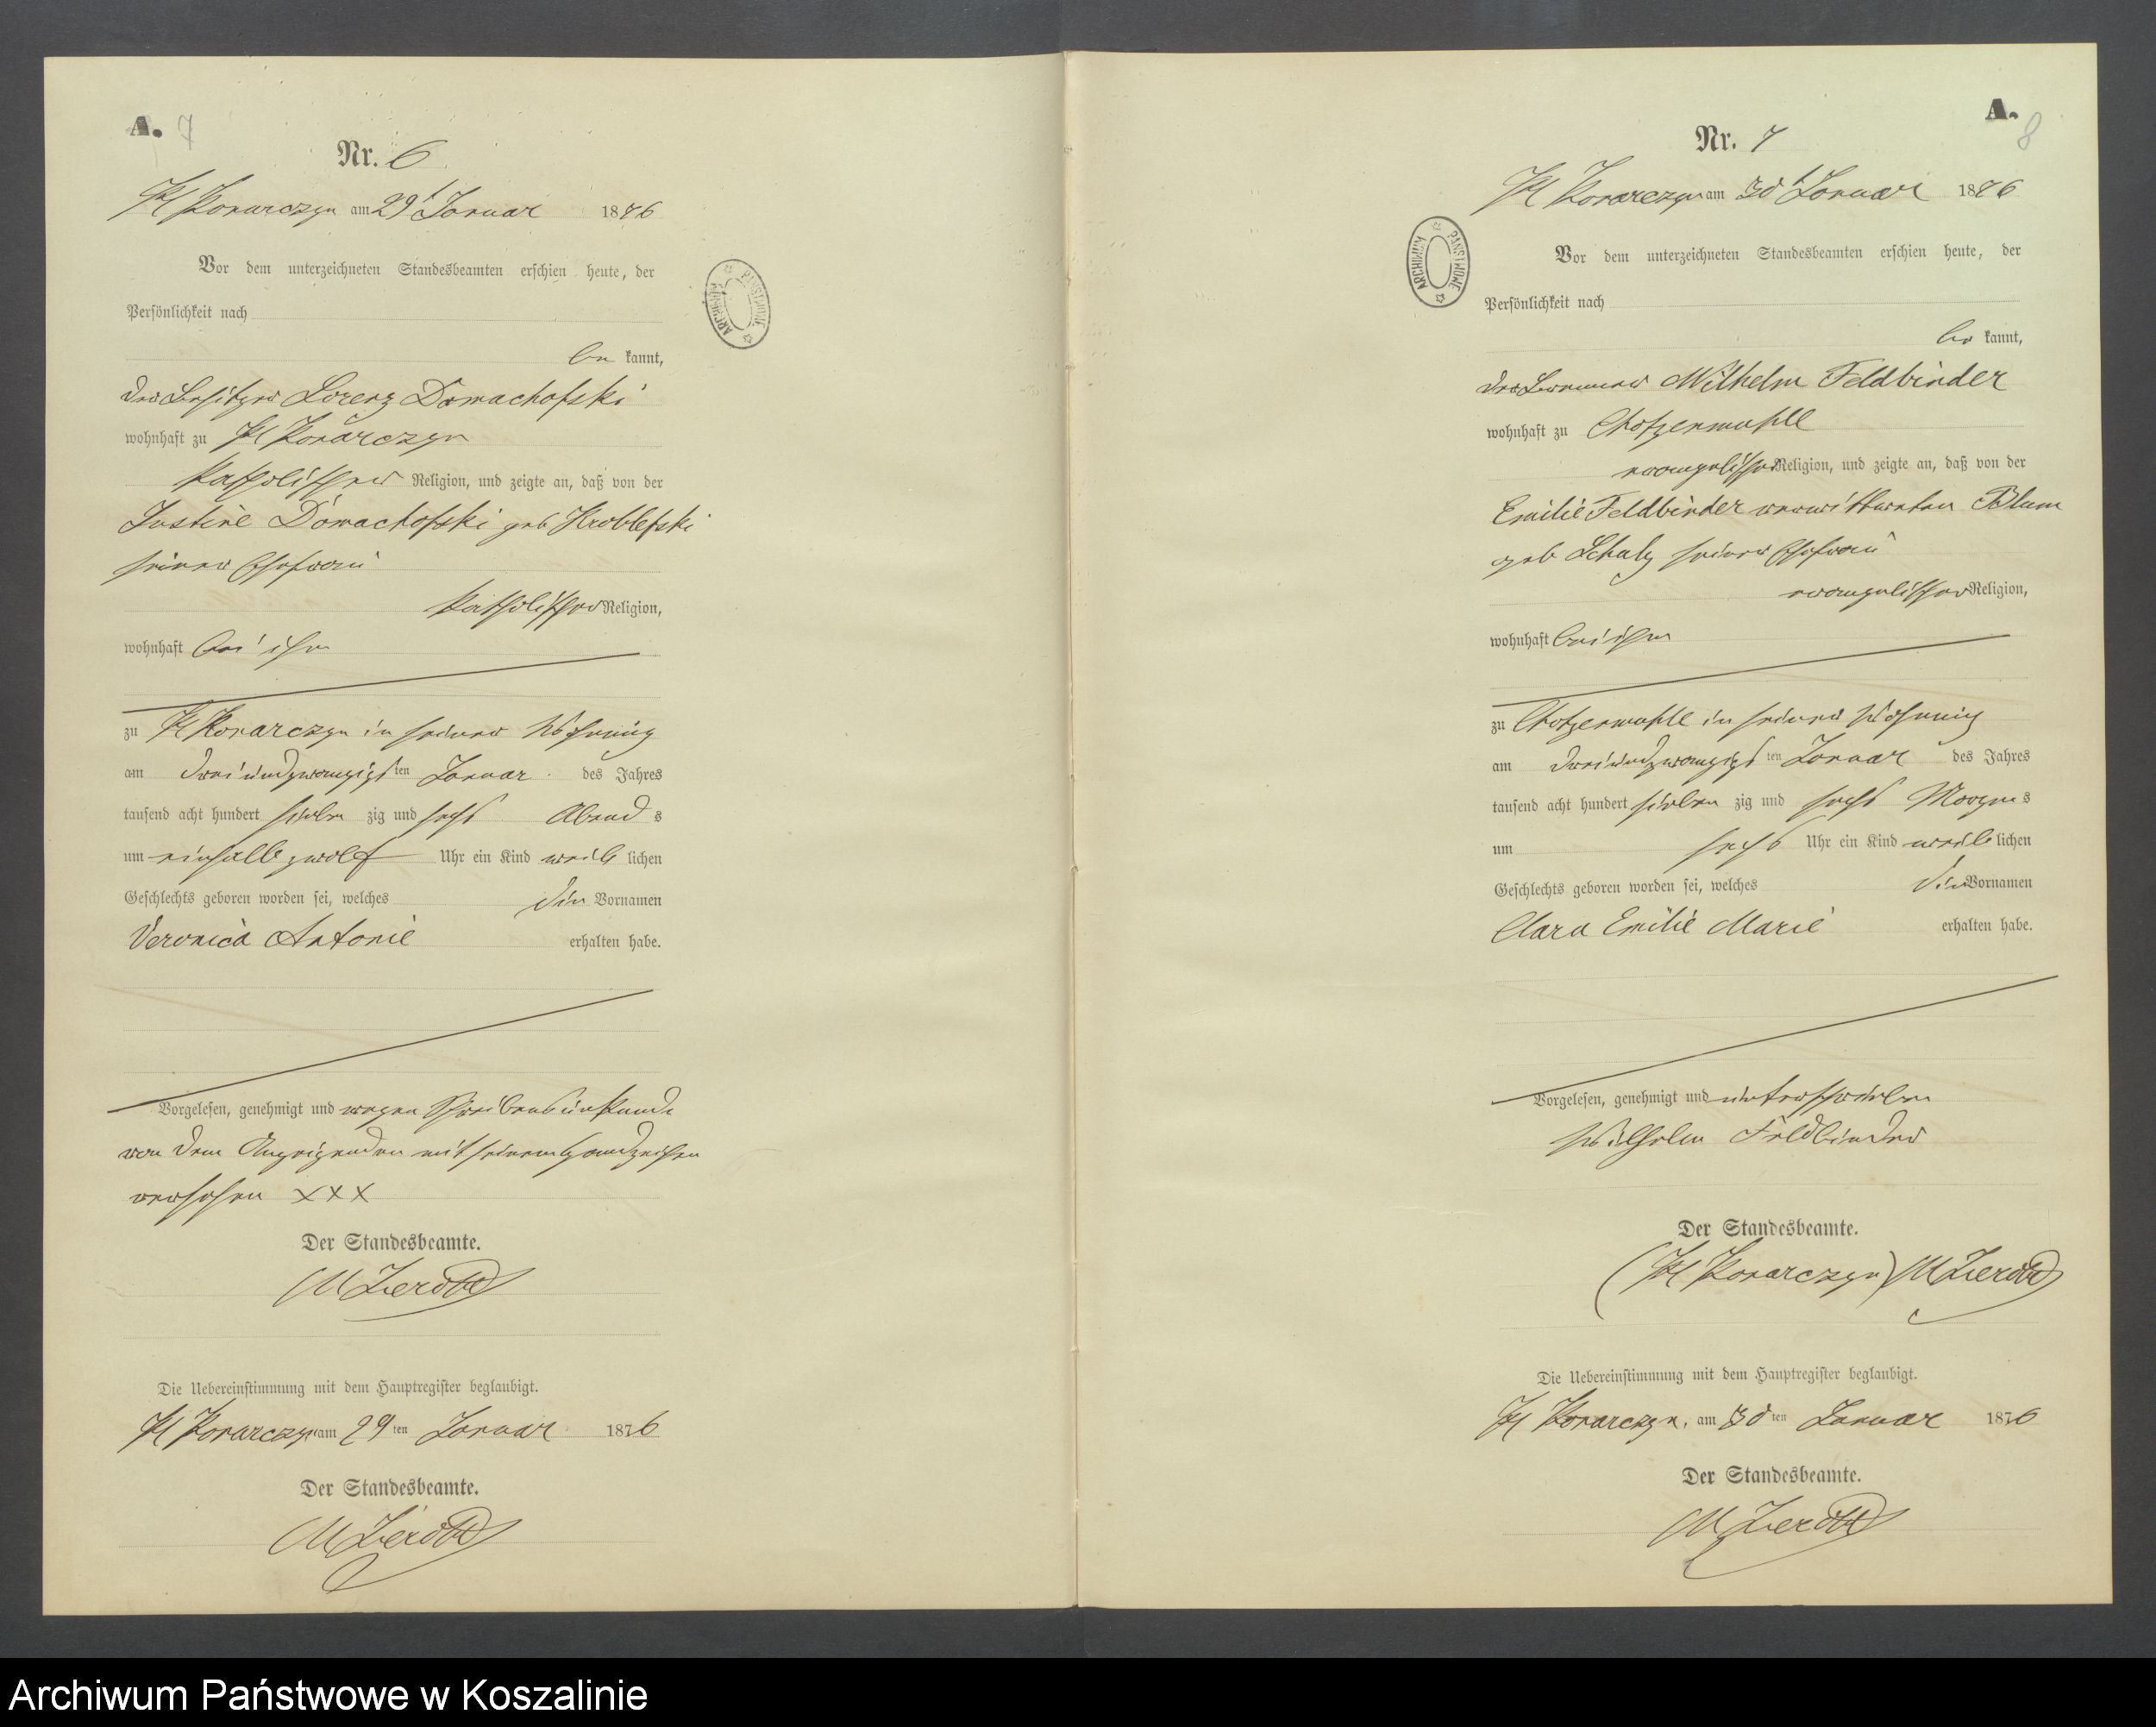 A. 7
Nr. 6
Kl Konarczyn am 29t Januar 1876
Vor dem unterzeichneten Standesbeamten erschien heute, der
Persönlichkeit nach
be kannt,
der Besitzer Lorenz Domachofski
wohnhaft zu Kl Konarczyn
katholischer Religion, und zeigte an, daß von der
Justine Domachofski geb Wroblefski
seiner Ehefrau
katholischer Religion,
wohnhaft bei ihm
zu Kl Konarczyn in seiner Wohnung
am dreiundzwanzigsten Januar des Jahres
tausend acht hundert sieben zig und sechs Abend s
um einhalb zwölf Uhr ein Kind weib lichen
Geschlechts geboren worden sei, welches die Vornamen
Veronica Antonie erhalten habe.
Vorgelesen, genehmigt und wegen Schreibensunkunde
von dem Anzeigenden mit seinem Handzeichen
versehen XXX
Der Standesbeamte.
Die Uebereinstimmung mit dem Hauptregister beglaubigt.
Kl Konarczyn am 29ten Januar 1876
Der Standesbeamte.
A.
8
Nr. 7
Kl Konarczyn am 30t Januar 1876
Vor dem unterzeichneten Standesbeamten erschien heute, der
Persönlichkeit nach
be kannt,
der Wilhelm Feldbinder
wohnhaft zu Chotzenmühle
evangelischer Religion, und zeigte an, daß von der
Emilie Feldbinder verwittweten Blum
geb Schulz seiner Ehefrau
evangelischer Religion,
wohnhaft bei ihm
zu Chotzenmühle in seiner Wohnung
am dreiundzwanzigsten Januar des Jahres
tausend acht hundert sieben zig und sechs Morgens
um sechs Uhr ein Kind weib lichen
Geschlechts geboren worden sei, welches die Vornamen
Clara Emilie Marie erhalten habe.
Vorgelesen, genehmigt und unterschrieben
Wilhelm Feldbinder
Der Standesbeamte.
(Kl Konarczyn)
Die Uebereinstimmung mit dem Hauptregister beglaubigt.
Kl Konarczyn, am 30ten Januar 1876
Der Standesbeamte.
ARCHIWUM PAŃSTWOWE
ARCHIWUM PAŃSTWOWE
Archiwum Państwowe w Koszalinie